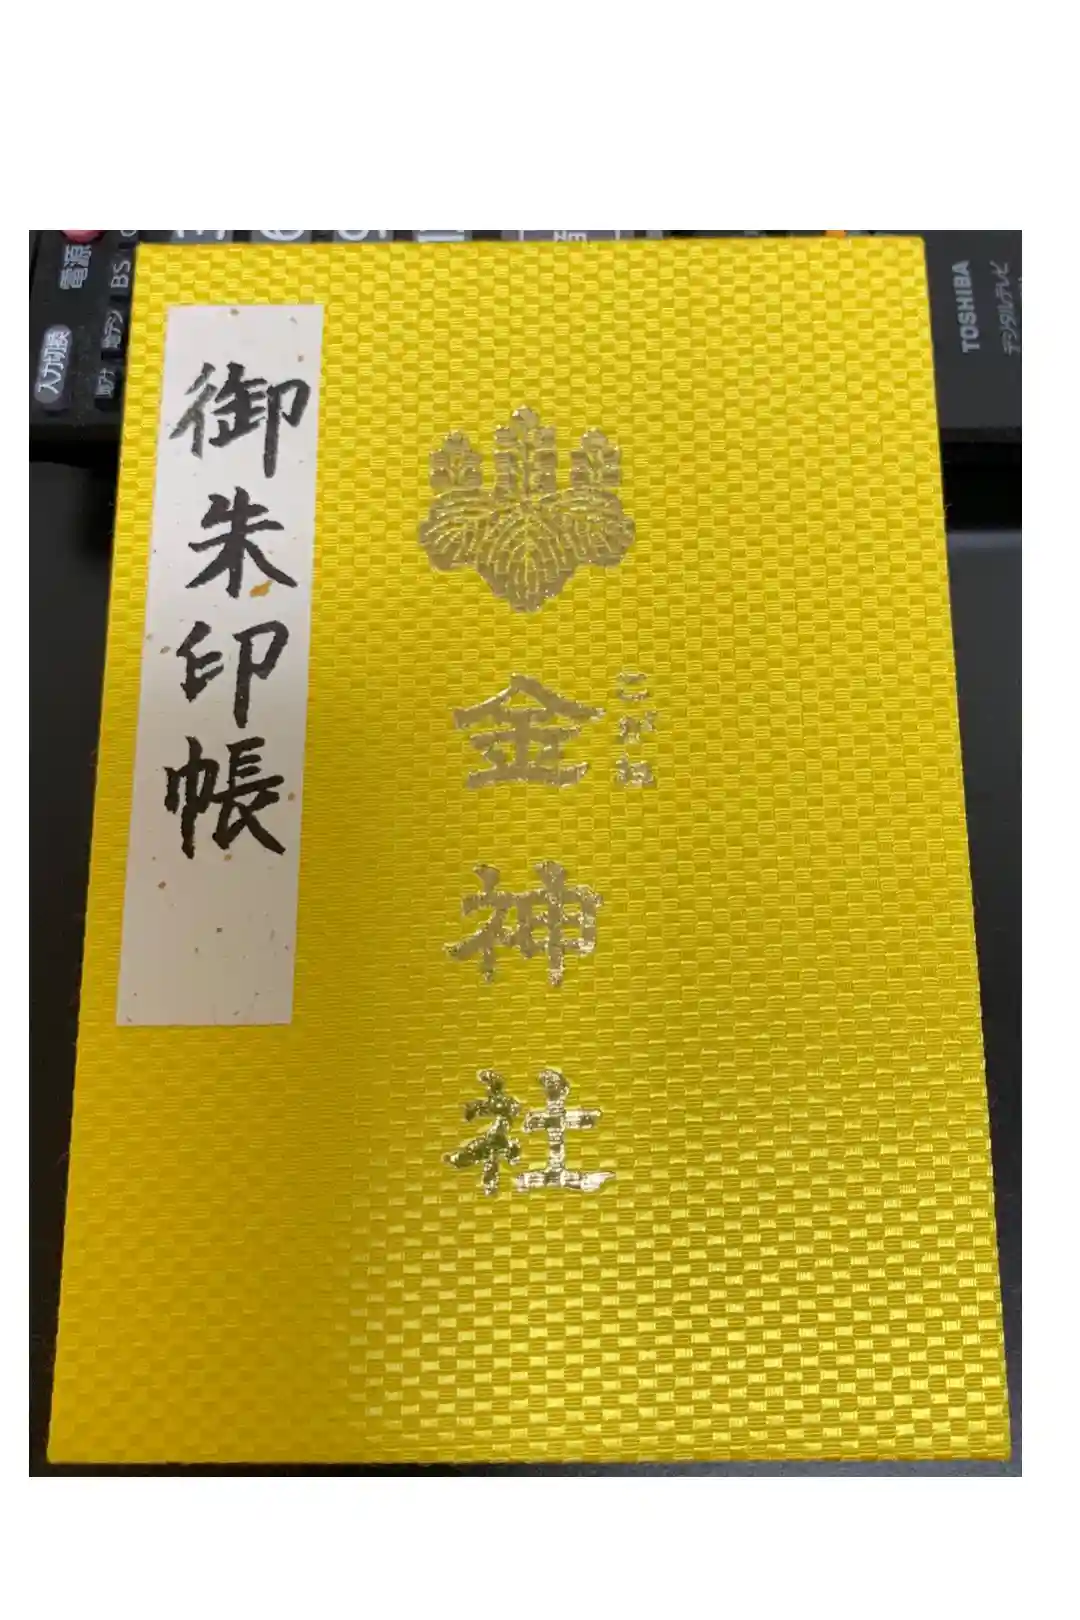 御朱印帳
こがね
金神社
電源
BS
入力切換
3
6
9
TOSHIBA
デジタルテレビ